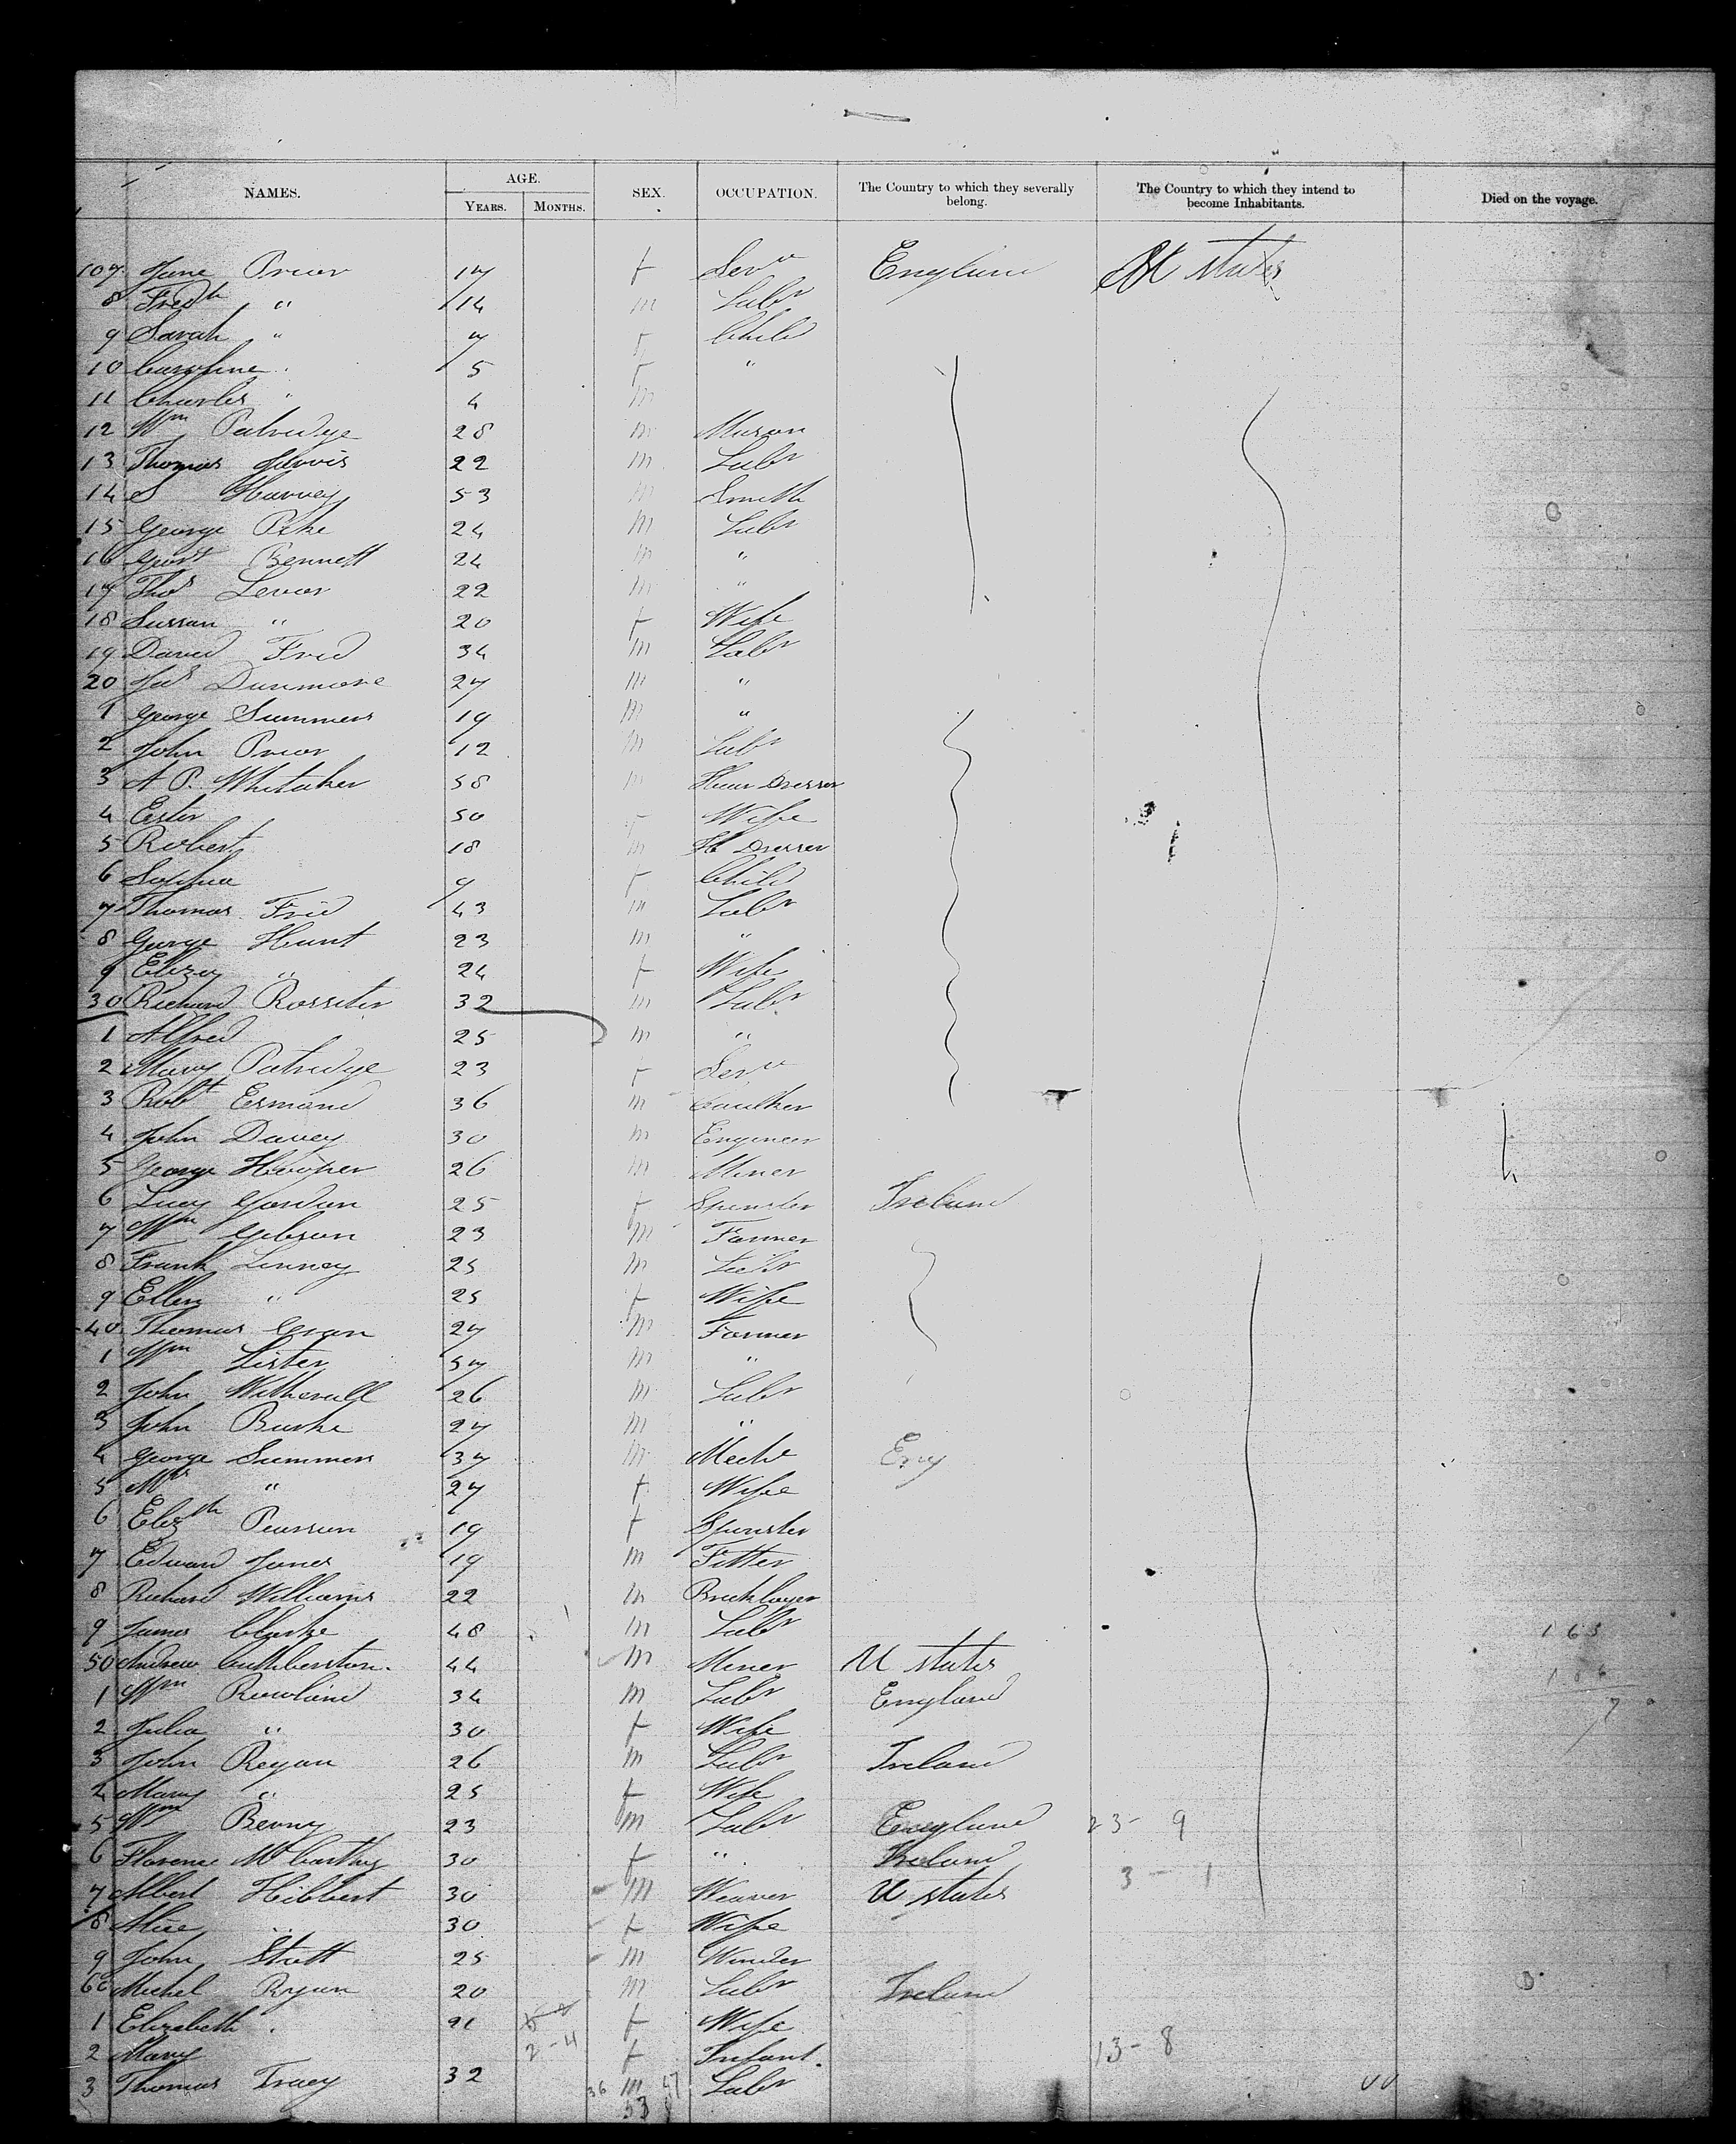 NAMES. AGE. YEARS. MONTHS. SEX. OCCUPATION. The Country to which they severally belong. The Country to which they intend to become Inhabitants. Died on the voyage.
107 Jane Prior 17 f Servt England U States
8 Fredk " 14 m Labr
9 Sarah " 7 f Child
10 Caroline " 5 f "
11 Charles " 4 m
12 Wm Patridge 28 m Mason
13 Thomas Jarvis 22 m Labr
14 S Harvey 53 m Smith
15 George Pike 24 m Labr
16 Bennett 24 m "
17 Thos Lever 22 m "
18 Sussan " 20 f Wife
19 David Fred 34 m Labr
20 Jas Dunmore 27 m "
1 George Summers 19 m "
2 John Prior 12 m Labr
3 A P. Whitaker 58 m Hair Dresser
4 Ester 50 f Wife
5 Robert 18 m H Dresser
6 Sophia 9 f Child
7 Thomas Fred 43 m Labr
8 George Hunt 23 m "
9 Elizey " 24 f Wife
30 Richard Rossiter 32 m Labr
1 Alfred 25 m "
2 Mary Patridge 23 f Servt
3 Robt Ermand 36 m Caulker
4 John Davey 30 m Engineer
5 George Hooper 26 m Miner
6 Lucy Gordon 25 f Spinster Ireland
7 Wm Gibson 23 m Farmer
8 Frank Linney 25 m Labr
9 Ellen " 25 f Wife
40 Thomas 27 m Farmer
1 Wm Lister 57 m "
2 John Witherall 26 m Labr
3 John Burke 27 m "
4 George Summers 37 m Mechc Eng
5 Mrs " 27 f Wife
6 Elizth Pearson 19 f Spinster
7 Edward Jones 19 m Fitter
8 Richard Williams 22 m Bricklayer
9 James Clarke 48 m Labr
50 Andrew Cuthbertson. 44 m Miner U States
1 Wm Rowland 34 m Labr England
2 Julia " 30 f Wife
3 John Regan 26 m Labr Ireland
4 Mary " 25 f Wife
5 Wm Benny 23 m Labr England 23 - 9
6 Florence McCarthy 30 f " Ireland 3 - 1
7 Albert Hibbert 30 m Weaver U States
8 Alice " 30 f Wife
9 John Stott 25 m Winder
60 Michel Ryan 20 m Labr Ireland
1 Elizabeth 21 f Wife
2 Mary 2-4 f Infant. 13 - 8
3 Thomas Tracy 32 m Labr
36 53